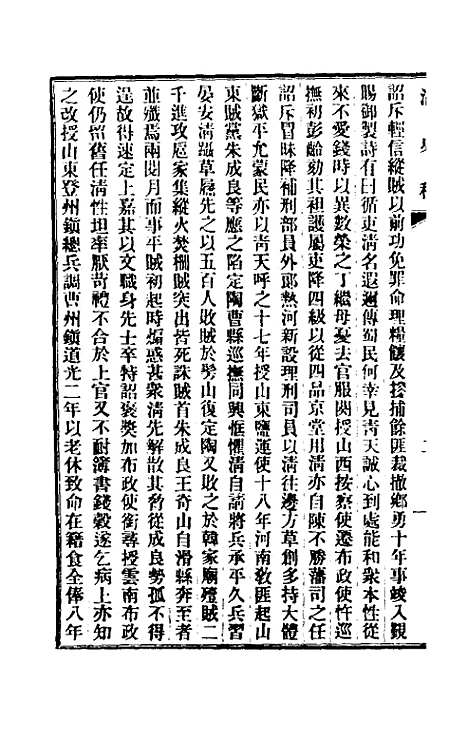 清史稿
詔斥輕信縱賊以前功免罪命理糧饟及搜捕餘匪裁撤鄉勇十年事竣入覲
賜御製詩有曰循吏清名遐邇傳蜀民何幸見青天誠心到處能和衆本性從
來不愛錢時以異數榮之丁繼母憂去官服闋授山西按察使遷布政使忤巡
撫初彭齡劾其袒護屬吏降四級以從四品京堂用清亦自陳不勝藩司之任
詔斥冒昧降補刑部員外郎熱河新設理刑司員以清往邊方草創多持大體
斷獄平允蒙民亦以青天呼之十七年授山東鹽運使十八年河南教匪起山
東賊黨朱成良等應之陷定陶曹縣巡撫同興恇懼清自請將兵承平久兵習
晏安清躡草屩先之以五百人敗賊於髣山復定陶又敗之於韓家廟殪賊二
千進攻扈家集縱火焚柵賊突出皆死誅賊首朱成良王奇山自滑縣奔至者
並殲焉兩閱月而事平賊初起時煽惑甚衆清先解散其脅從成良勢孤不得
逞故得速定上嘉其以文職身先士卒特詔褒獎加布政使銜尋授雲南布政
使仍留舊任清性坦率厭苛禮不合於上官又不耐簿書錢穀遂乞病上亦知
之改授山東登州鎮總兵調曹州鎮道光二年以老休致命在籍食全俸八年